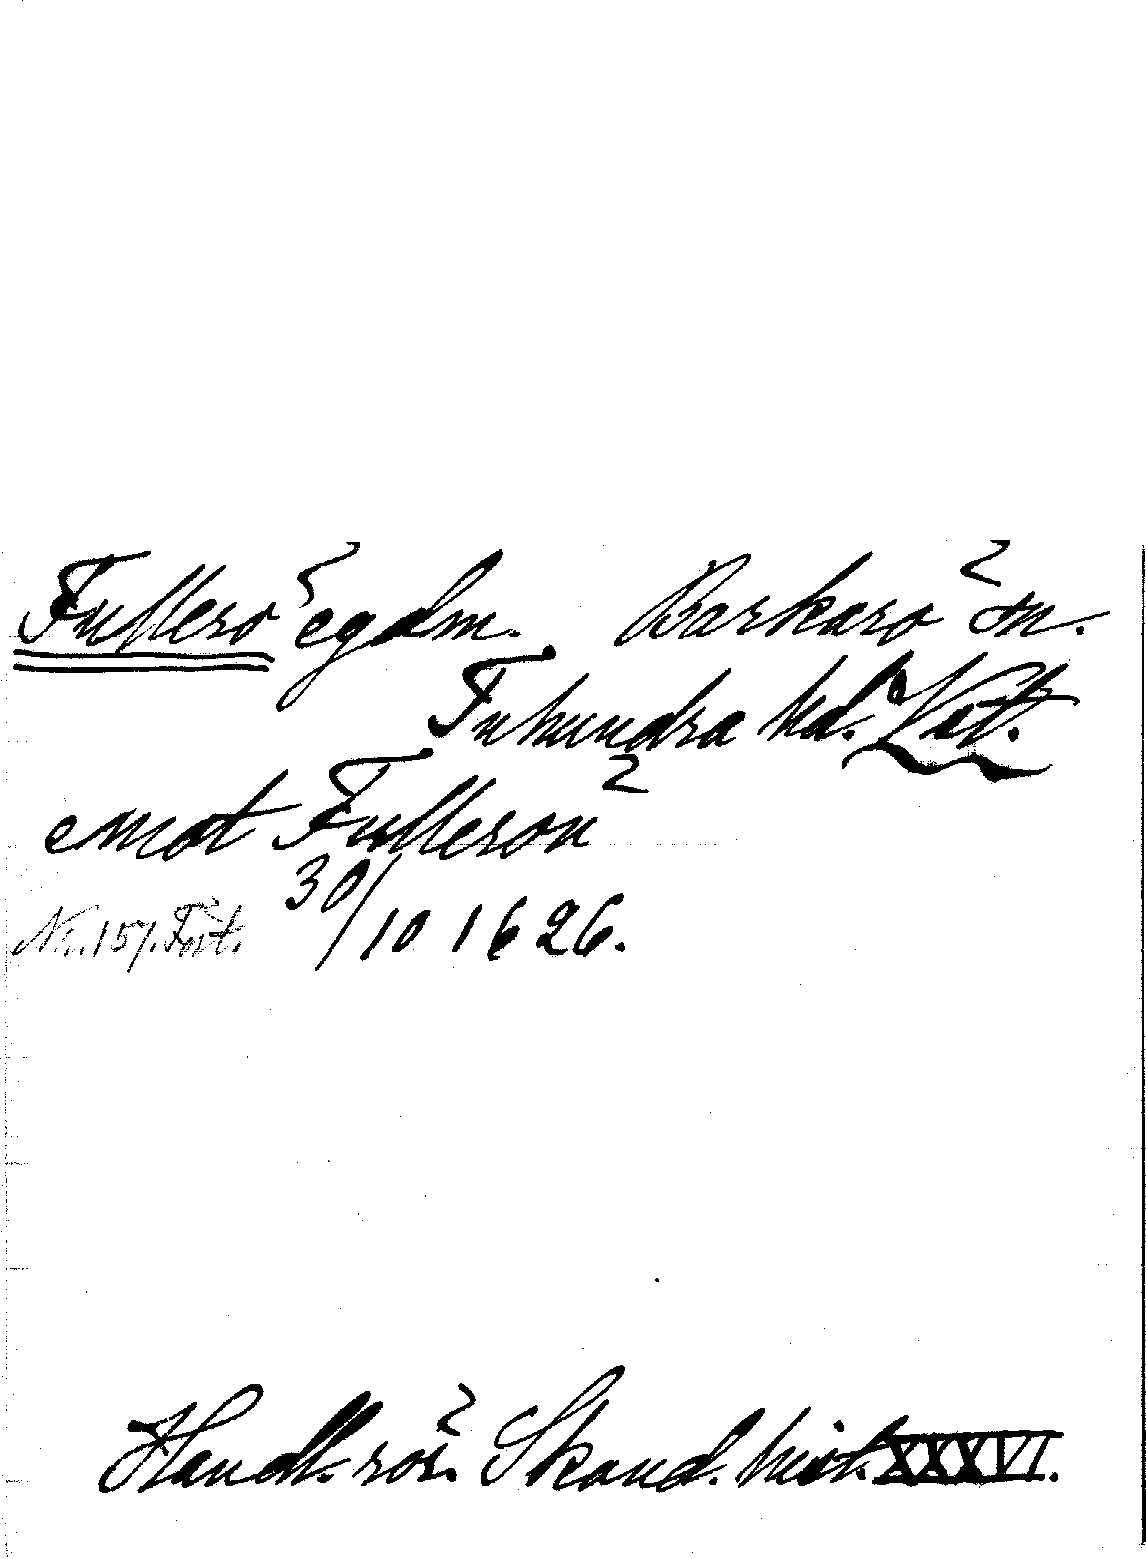 Fullerö egdm. Barkarö sn.
Tuhundra hd. Vst.
emot Fullerön
Nr. 151. Fört. 30/10 1626.
Handl. rör. Skand. hist. XXXVI.